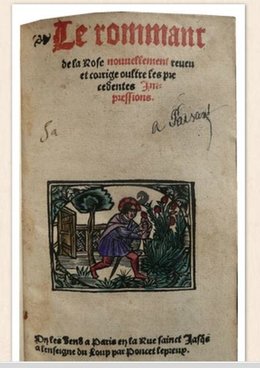 Le rommant
de la Rose nouuellement reueu
et corrige oultre les pre
cedentes Im-
pressions.
a Paisant
On les vend a Paris en la Rue sainct Jaqs
a lenseigne du Loup par Poncet lepreux.